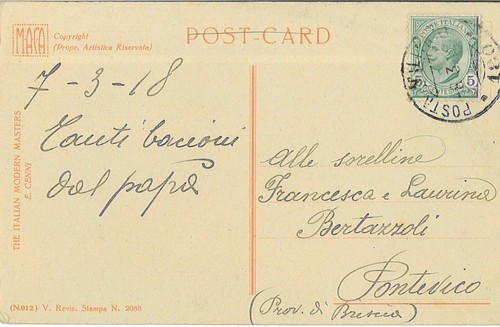 MAGA
Copyright
(Propr. Artistica Riservata)
POST-CARD
POSTE ITALIANE
5
POSTA
7-3-18
Tanti bacioni
dal papà
Alle sorelline
Francesca e Laurina
Bertazzoli
Pontevico
(Prov. di Brescia)
THE ITALIAN MODERN MASTERS
E. CENNI
(N.012) V. Revis. Stampa N. 2088